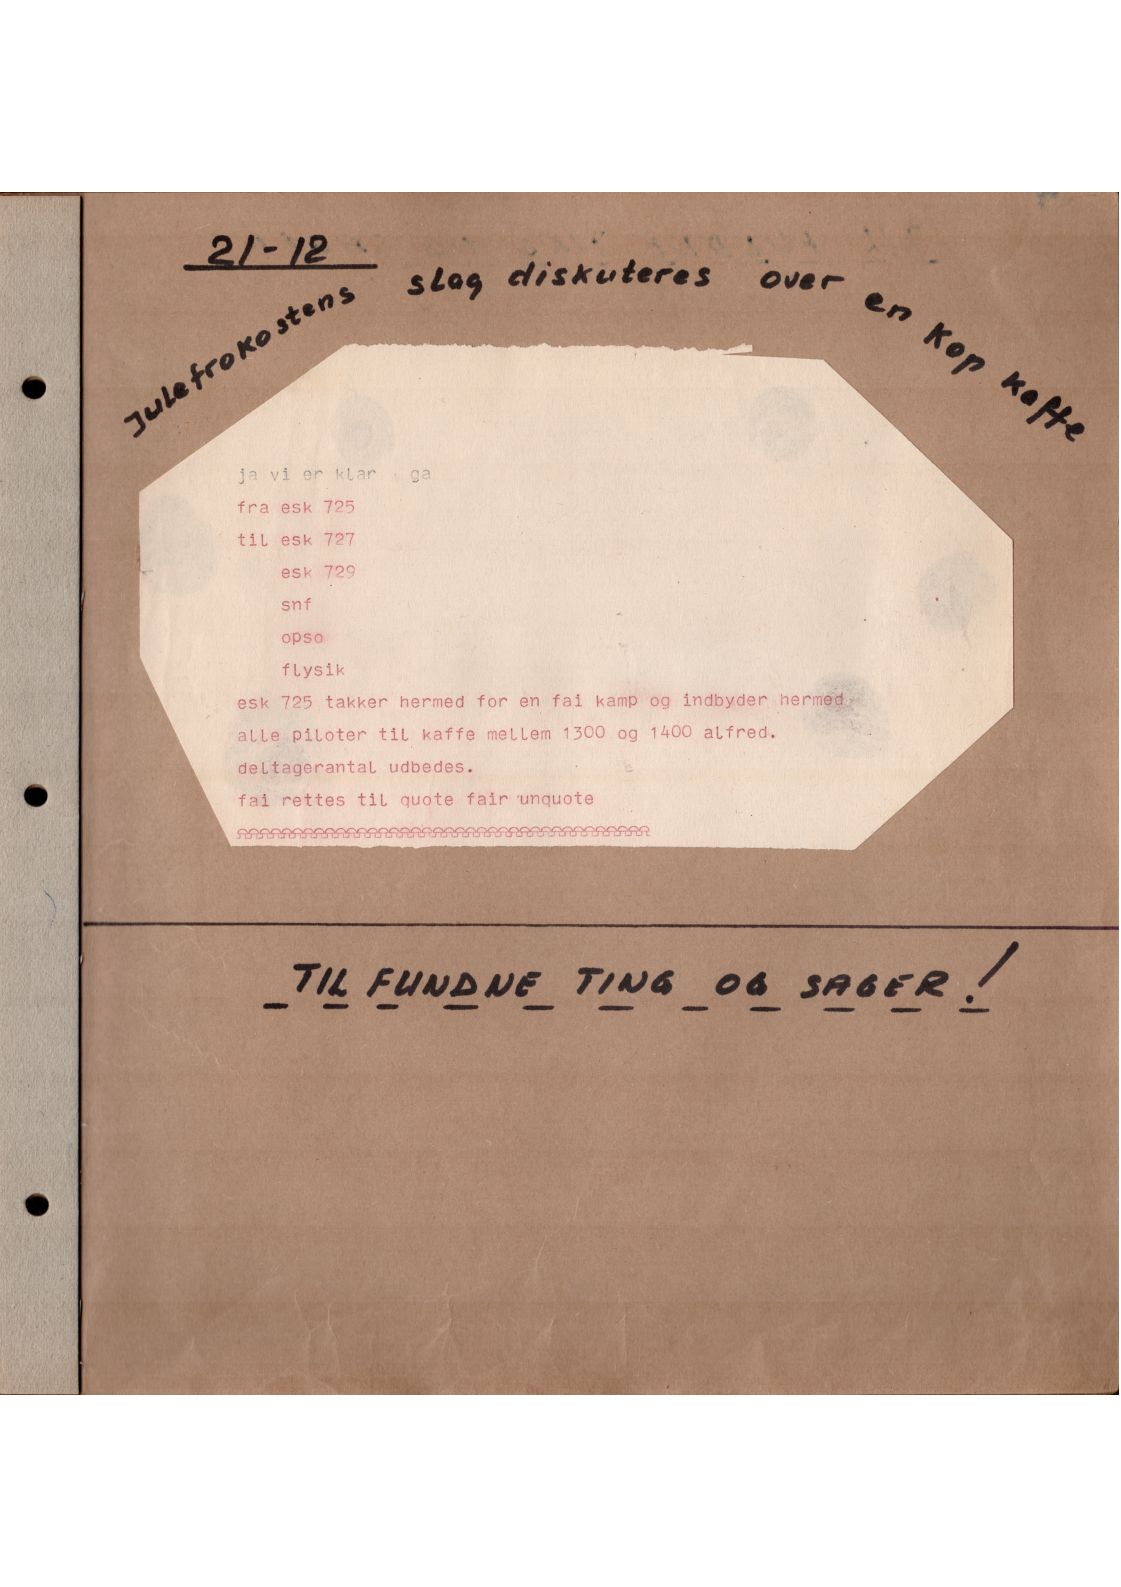 21-12
Julefrokostens slag diskuteres over en kop kaffe
ja vi er klar ga
fra esk 725
til esk 727
esk 729
snf
opso
flysik
esk 725 takker hermed for en fai kamp og indbyder hermed
alle piloter til kaffe mellem 1300 og 1400 alfred.
deltagerantal udbedes.
fai rettes til quote fair unquote
TIL FUNDNE TING OG SAGER!